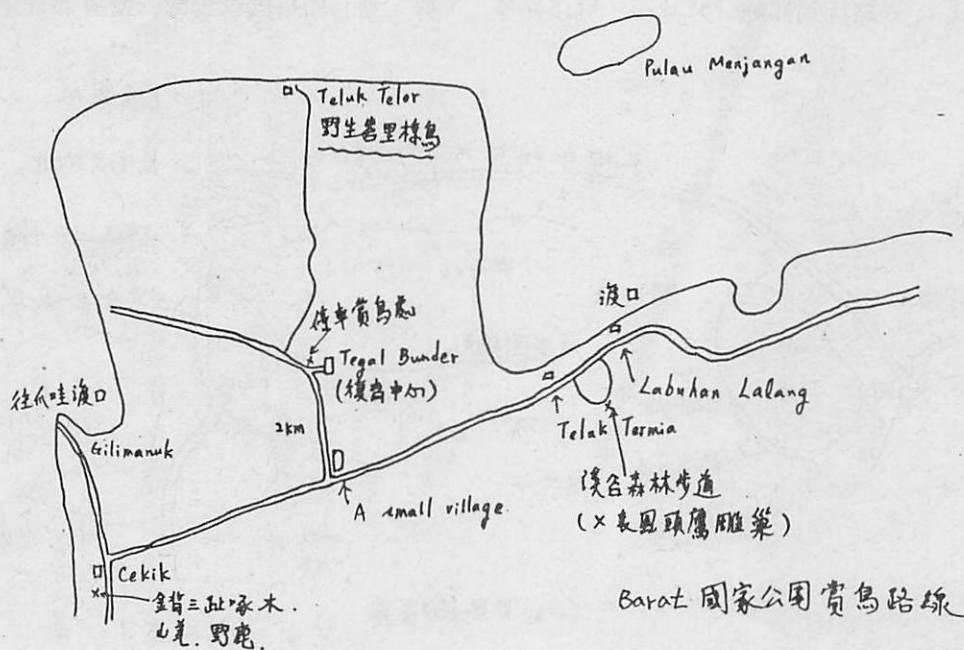 Pulau Menjangan
Teluk Telor
野生峇里椋鳥
渡口
停車賞鳥處
Tegal Bunder
(復育中心)
往爪哇渡口
Gilimanuk
2km
Labuhan Lalang
Teluk Termia
A small village
溪谷森林步道
(× 表鳳頭鷹鵰巢)
Cekik
金背三趾啄木.
山羌. 野鹿.
Barat 國家公園賞鳥路線